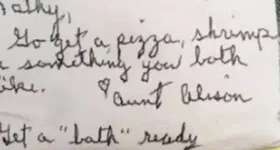 Go get a pizza, shrimp
something you both
like.
♡ Aunt Alison
Get a "bath" ready